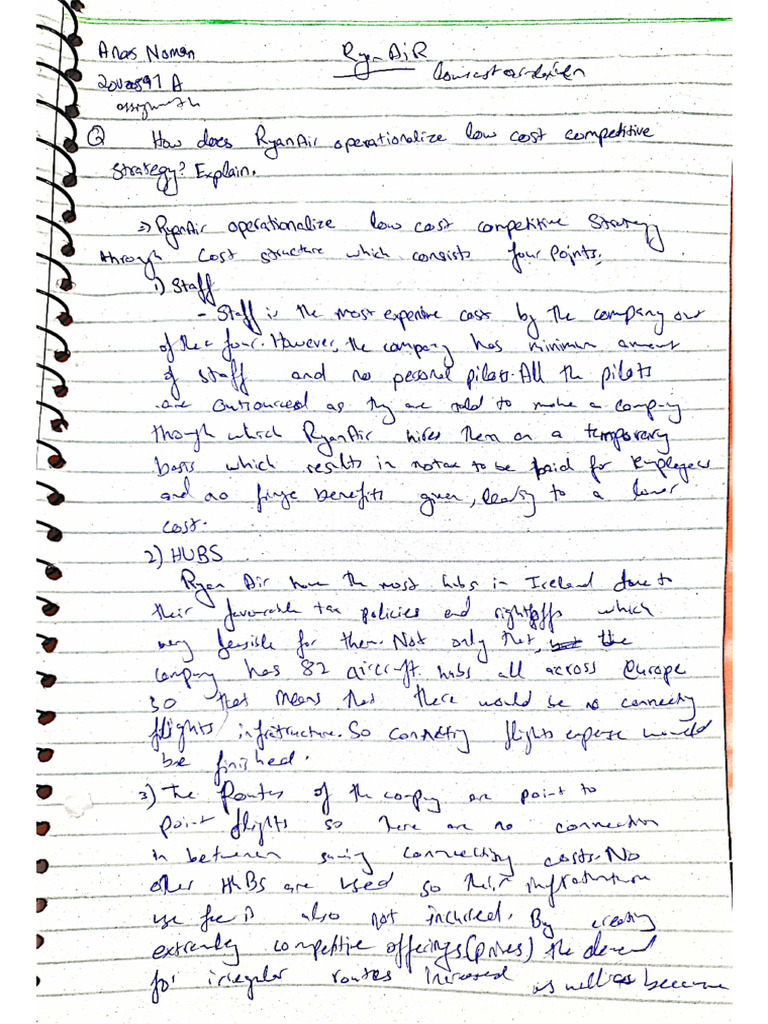 Anas Noman
RyanAiR
A
Q How does RyanAir operationalize low cost competitive
strategy? Explain.
=> RyanAir operationalize low cost competitive Strategy
through Cost structure which consists four points.
1) Staff
- Staff is the most expensive cost by the company out
of the four. However, the company has minimum amount
of staff and no personal pilots. All the pilots
are outsourced as they are told to make a company
though which RyanAir hires them on a temporary
basis which results in no tax to be paid for employees
and no finge benefits given, leading to a lower
cost.
2) HUBS
Ryan Air have the most hubs in Iceland due to
their favourable tax policies and which
very feasible for them. Not only that, the
company has 82 aircraft hubs all across Europe
so that means that there would be no connecting
flights infrstructure. So connecting flights expense would
be finished.
3) The Routes of the company are point to
point flights so there are no connection
in between saving connecting costs. No
other HUBS are used so their
use fee is also not incurred. By creating
extremely competitive offerings (prices) the demand
for irregular routes increased as well as became